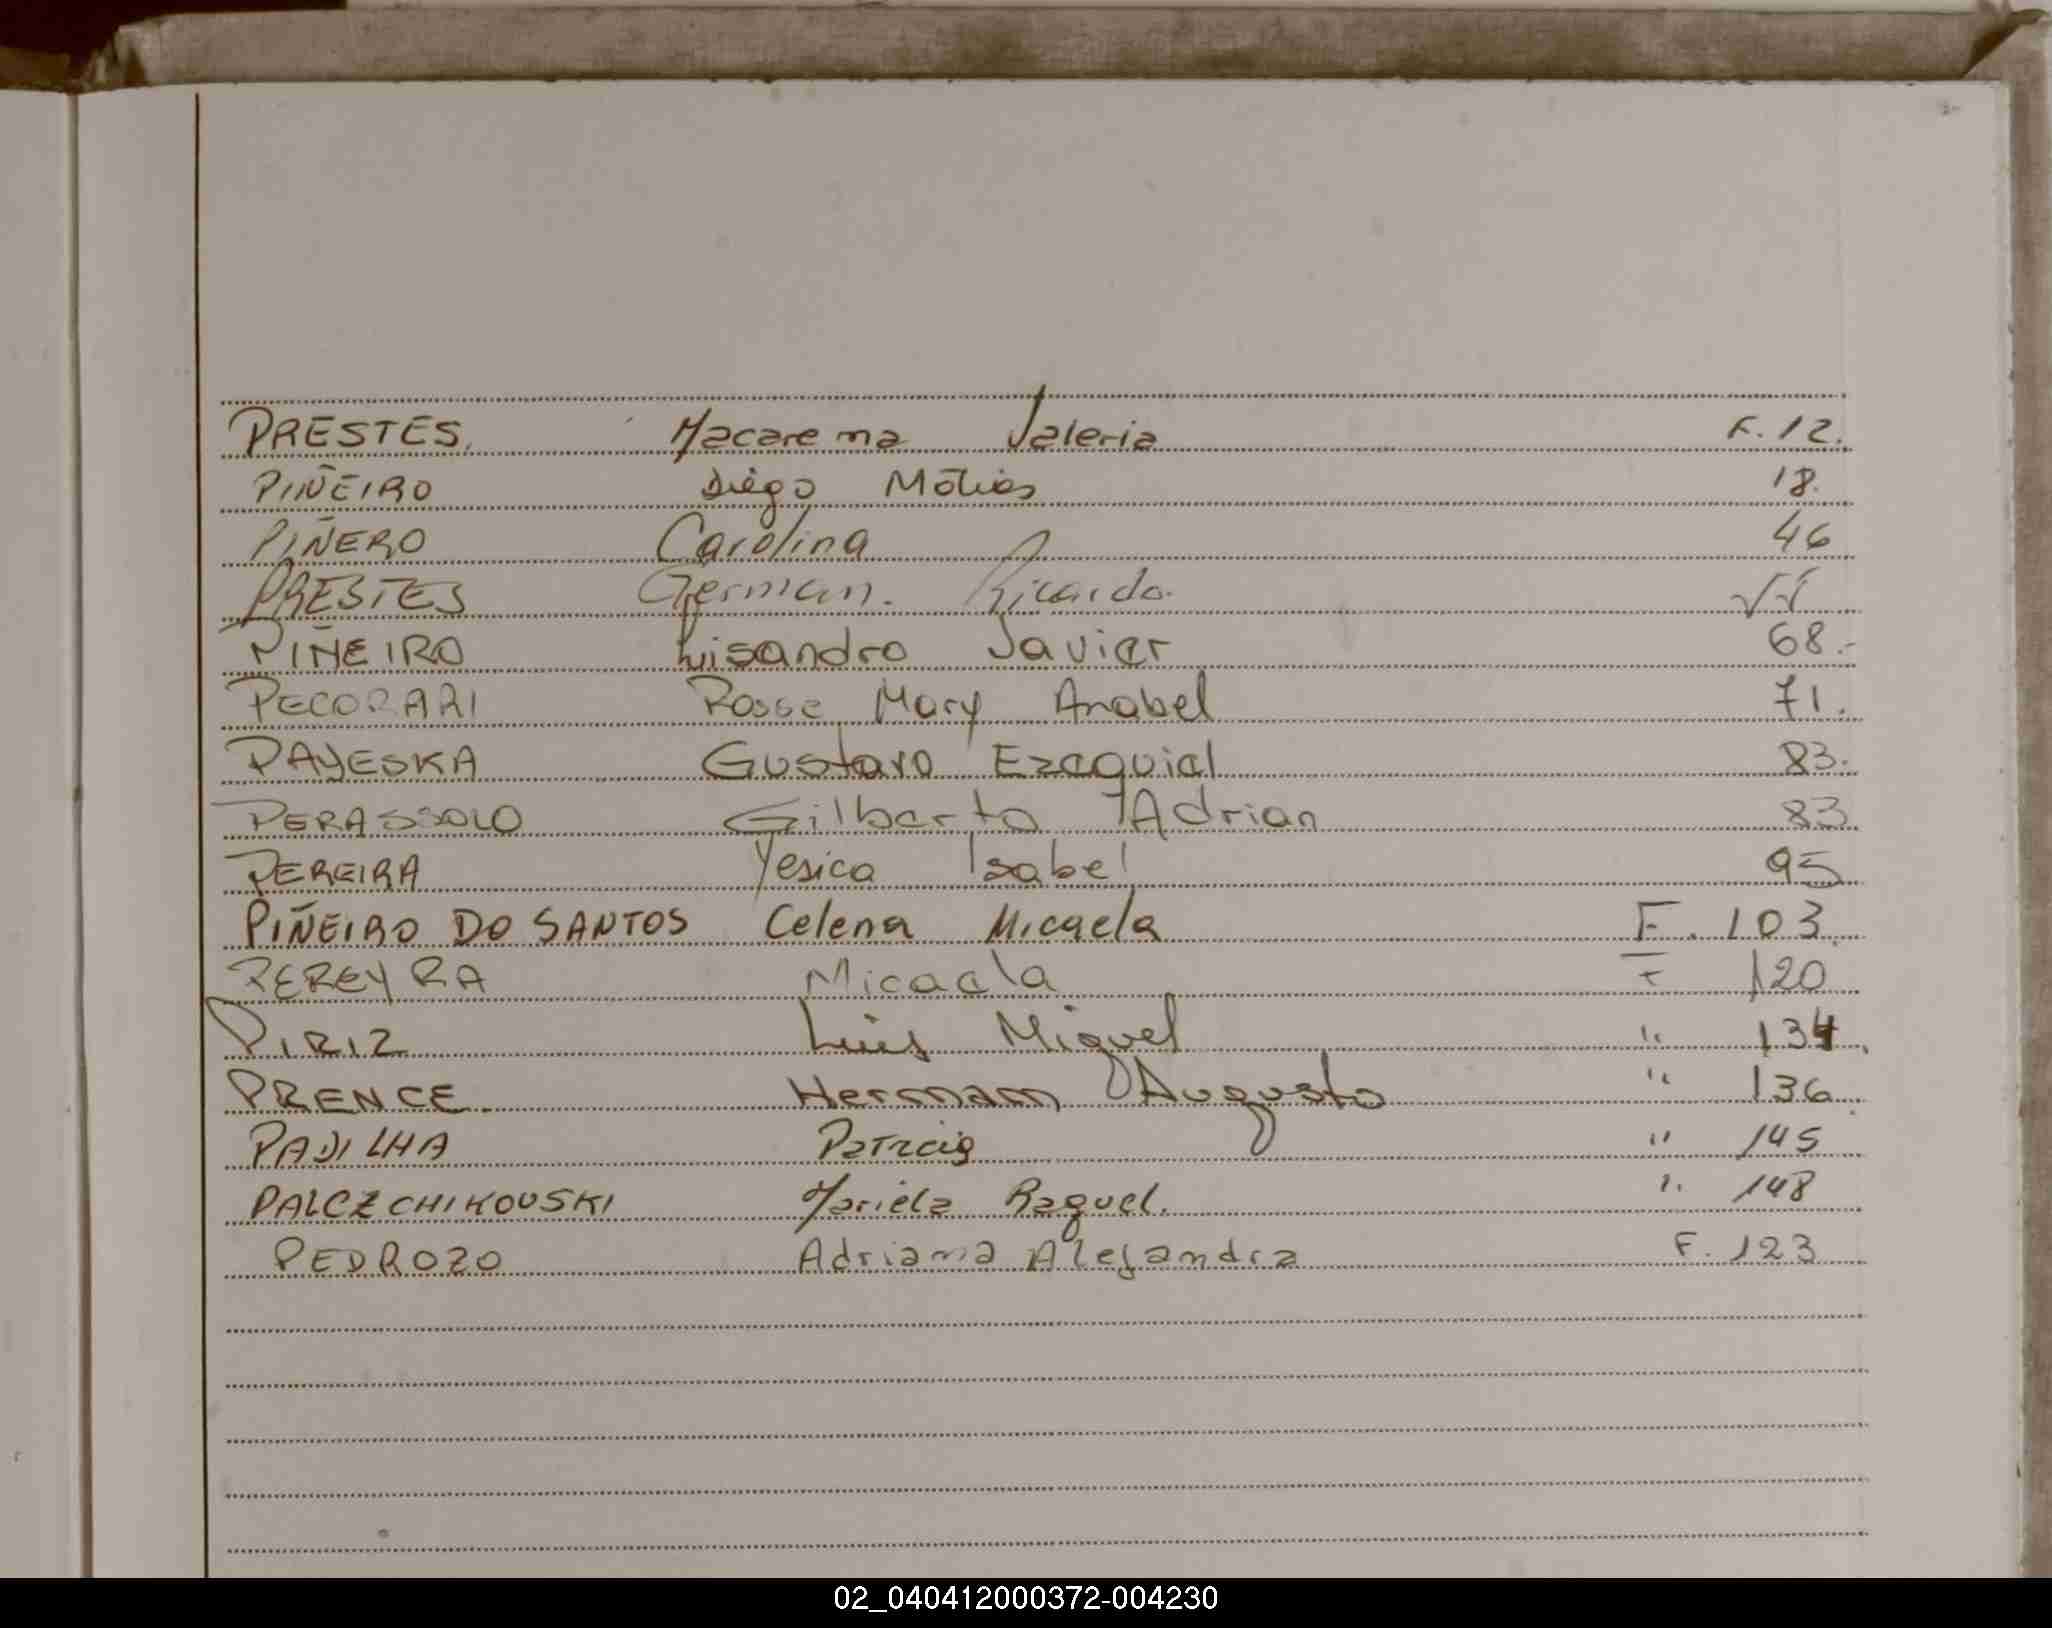 PRESTES. Macarena Valeria F. 12.
PIÑEIRO Diego Matias 18.
PIÑERO Carolina 46
PRESTES German. Ricardo.
PIÑEIRO Lisandro Javier 68.-
PECORARI Rosse Mary Anabel 71.
PAYESKA Gustavo Ezequiel 83.
PERASSOLO Gilberto Adrian 83
PEREIRA Yesica Isabel 95
PIÑEIRO DO SANTOS Celena Micaela F. 103.
PEREYRA Micaela F 120
PIRIZ Luis Miguel " 134.
PRENCE. Hernan Augusto " 136.
PADILHA " 145
PALCZCHIKOUSKI Mariela Raquel. " 148
PEDROZO Adriana Alejandra F. 123
02_040412000372-004230